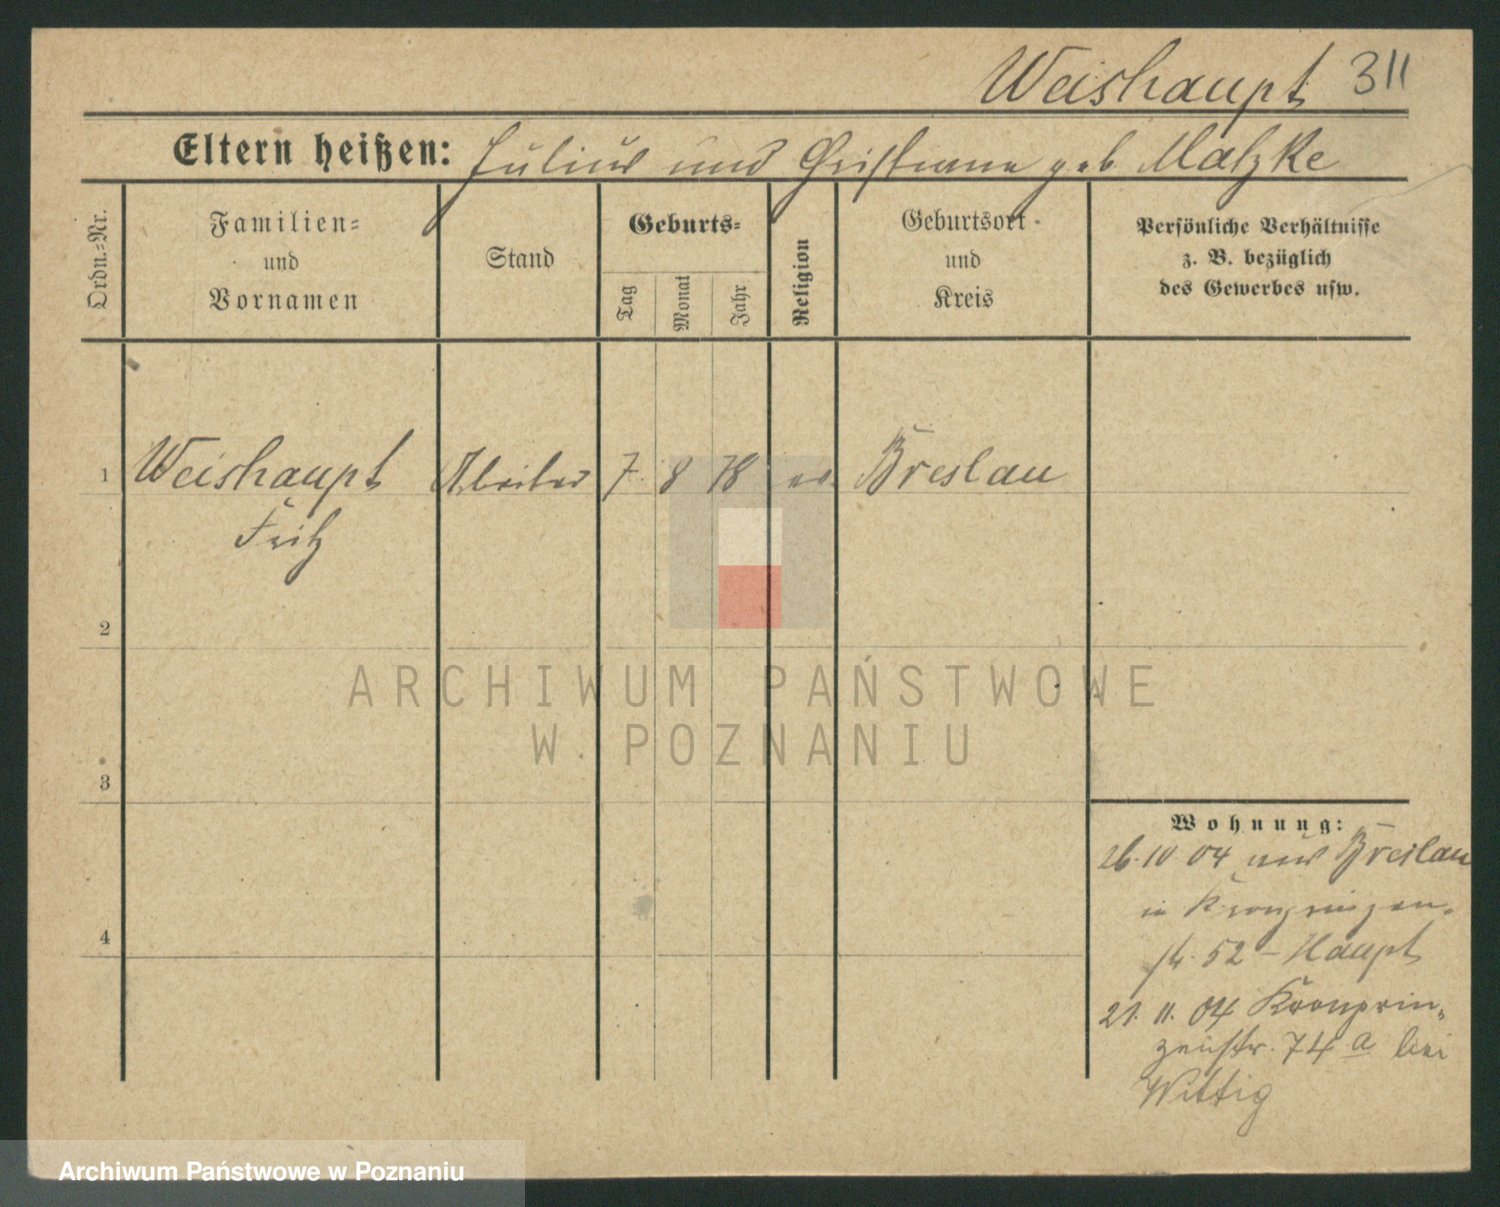 Weishaupt 311
Eltern heißen: Julius und Christiane geb Matzke
Ordn.-Nr.
Familien-
und
Vornamen
Stand
Geburts-
Tag
Monat
Jahr
Religion
Geburtsort
und
Kreis
Persönliche Verhältnisse
z. B. bezüglich
des Gewerbes usw.
1 Weishaupt Arbeiter 7 8 78 ev Breslau
Fritz
2
3
4
Wohnung:
26.10 04 aus Breslau
in Kronprinzen-
str. 52 - Haupt
21. 11. 04 Kronprin-
zenstr. 74 a bei
Wittig
ARCHIWUM PAŃSTWOWE
W POZNANIU
Archiwum Państwowe w Poznaniu